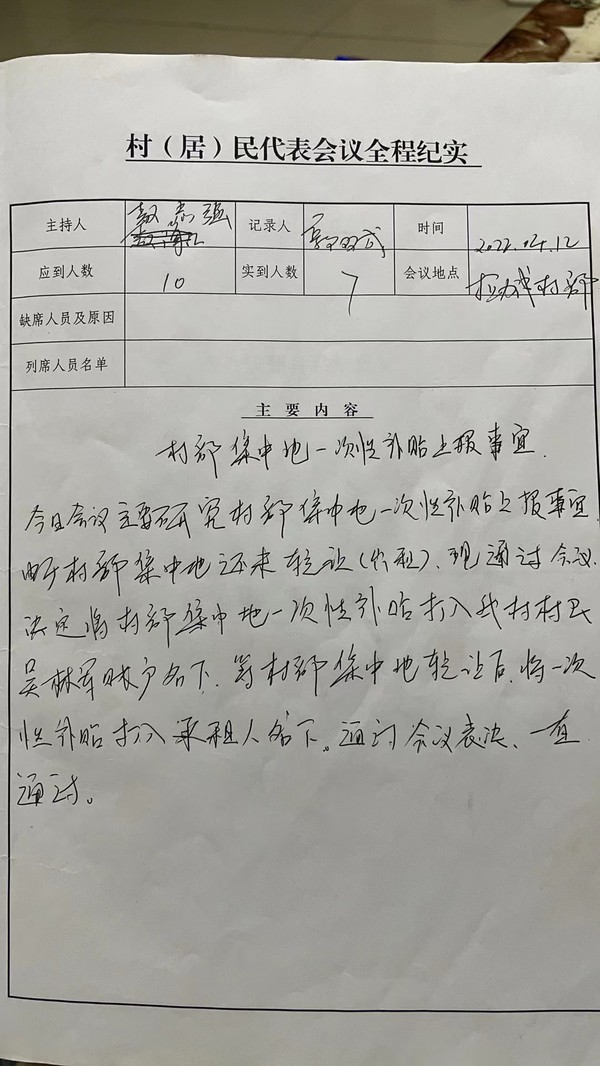 村（居）民代表会议全程纪实
主持人 赵志强 记录人 时间 2022.04.12
应到人数 10 实到人数 7 会议地点 村部
缺席人员及原因
列席人员名单
主要内容
村部集中地一次性补贴上报事宜.
今日会议主要研究村部集中地一次性补贴上报事宜
由于村部集中地还未转让(出租)、现通过会议
决定将村部集中地一次性补贴打入我村村民
吴林军账户名下.等村部集中地转让后.将一次
性补贴打入承租人名下。通过会议表决、一直
通过。